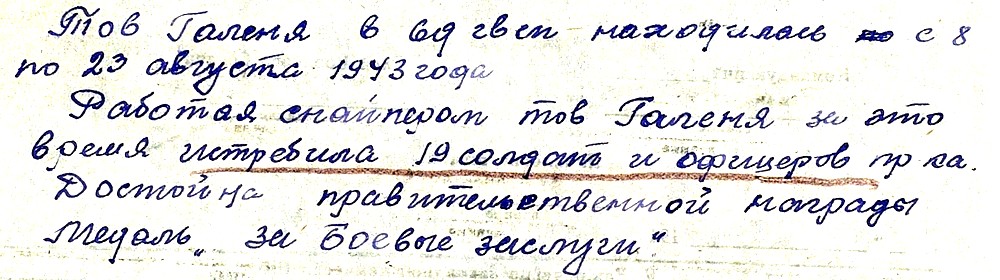 Тов Галеня в 69 гвсп находилась с 8
по 23 августа 1943 года
Работая снайпером тов Галеня за это
время истребила 19 солдат и офицеров пр-ка.
Достойна правительственной награды
Медаль „за Боевые заслуги“